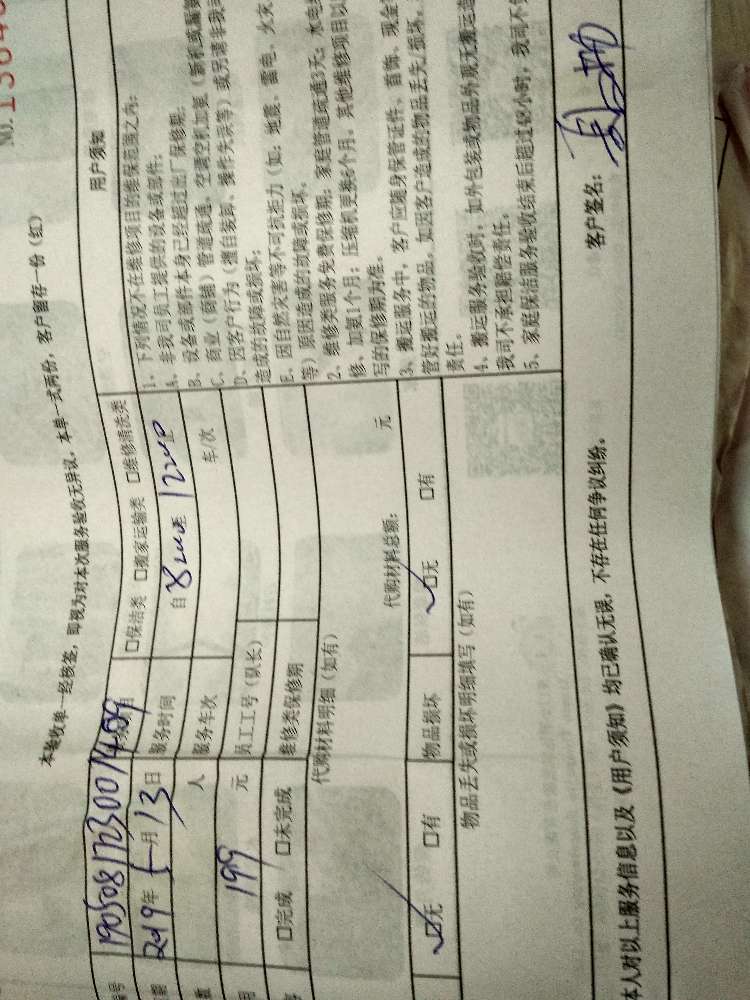 NO.
本验收单一经核签，即视为对本次服务验收无异议，本单一式两份，客户留存一份（红）
编号 190508172300 □保洁类 □搬家运输类 □维修清洗类
2019年5月13日 服务时间 自8:00至12:00止
人 服务车次 车/次
199元 员工工号（队长）
□完成 □未完成 维修类保修期
代购材料明细（如有） 代购材料总额： 元
□无 □有 物品损坏 □无 □有
物品丢失或损坏明细填写（如有）
用户须知
1、下列情况不在维修项目的维保范围之内：
A、非我司员工提供的设备或部件；
设备或部件本身已经超过出厂保修期；
B、商业（商铺）管道疏通、空调空机加氨（新机或漏氨
C、因客户行为（擅自装卸、操作失误等）或另请非我司
D、
造成的故障或损坏；
E、因自然灾害等不可抗拒力（如：地震、雷电、火灾
等）原因造成的故障或损坏。
2、维修类服务免费保修期：家庭管道疏通3天；水电维
修、加氨1个月；压缩机更换6个月。其他维修项目以
写的保修期为准。
3、搬运服务中，客户应随身保管证件、首饰、现金
管好搬运的物品。如因客户造成的物品丢失、损坏，
责任。
4、搬运服务验收时，如外包装或物品外观无搬运造
我司不承担赔偿责任。
5、家庭保洁服务验收结束后超过48小时，我司不
本人对以上服务信息以及《用户须知》均已确认无误，不存在任何争议纠纷。
客户签名：